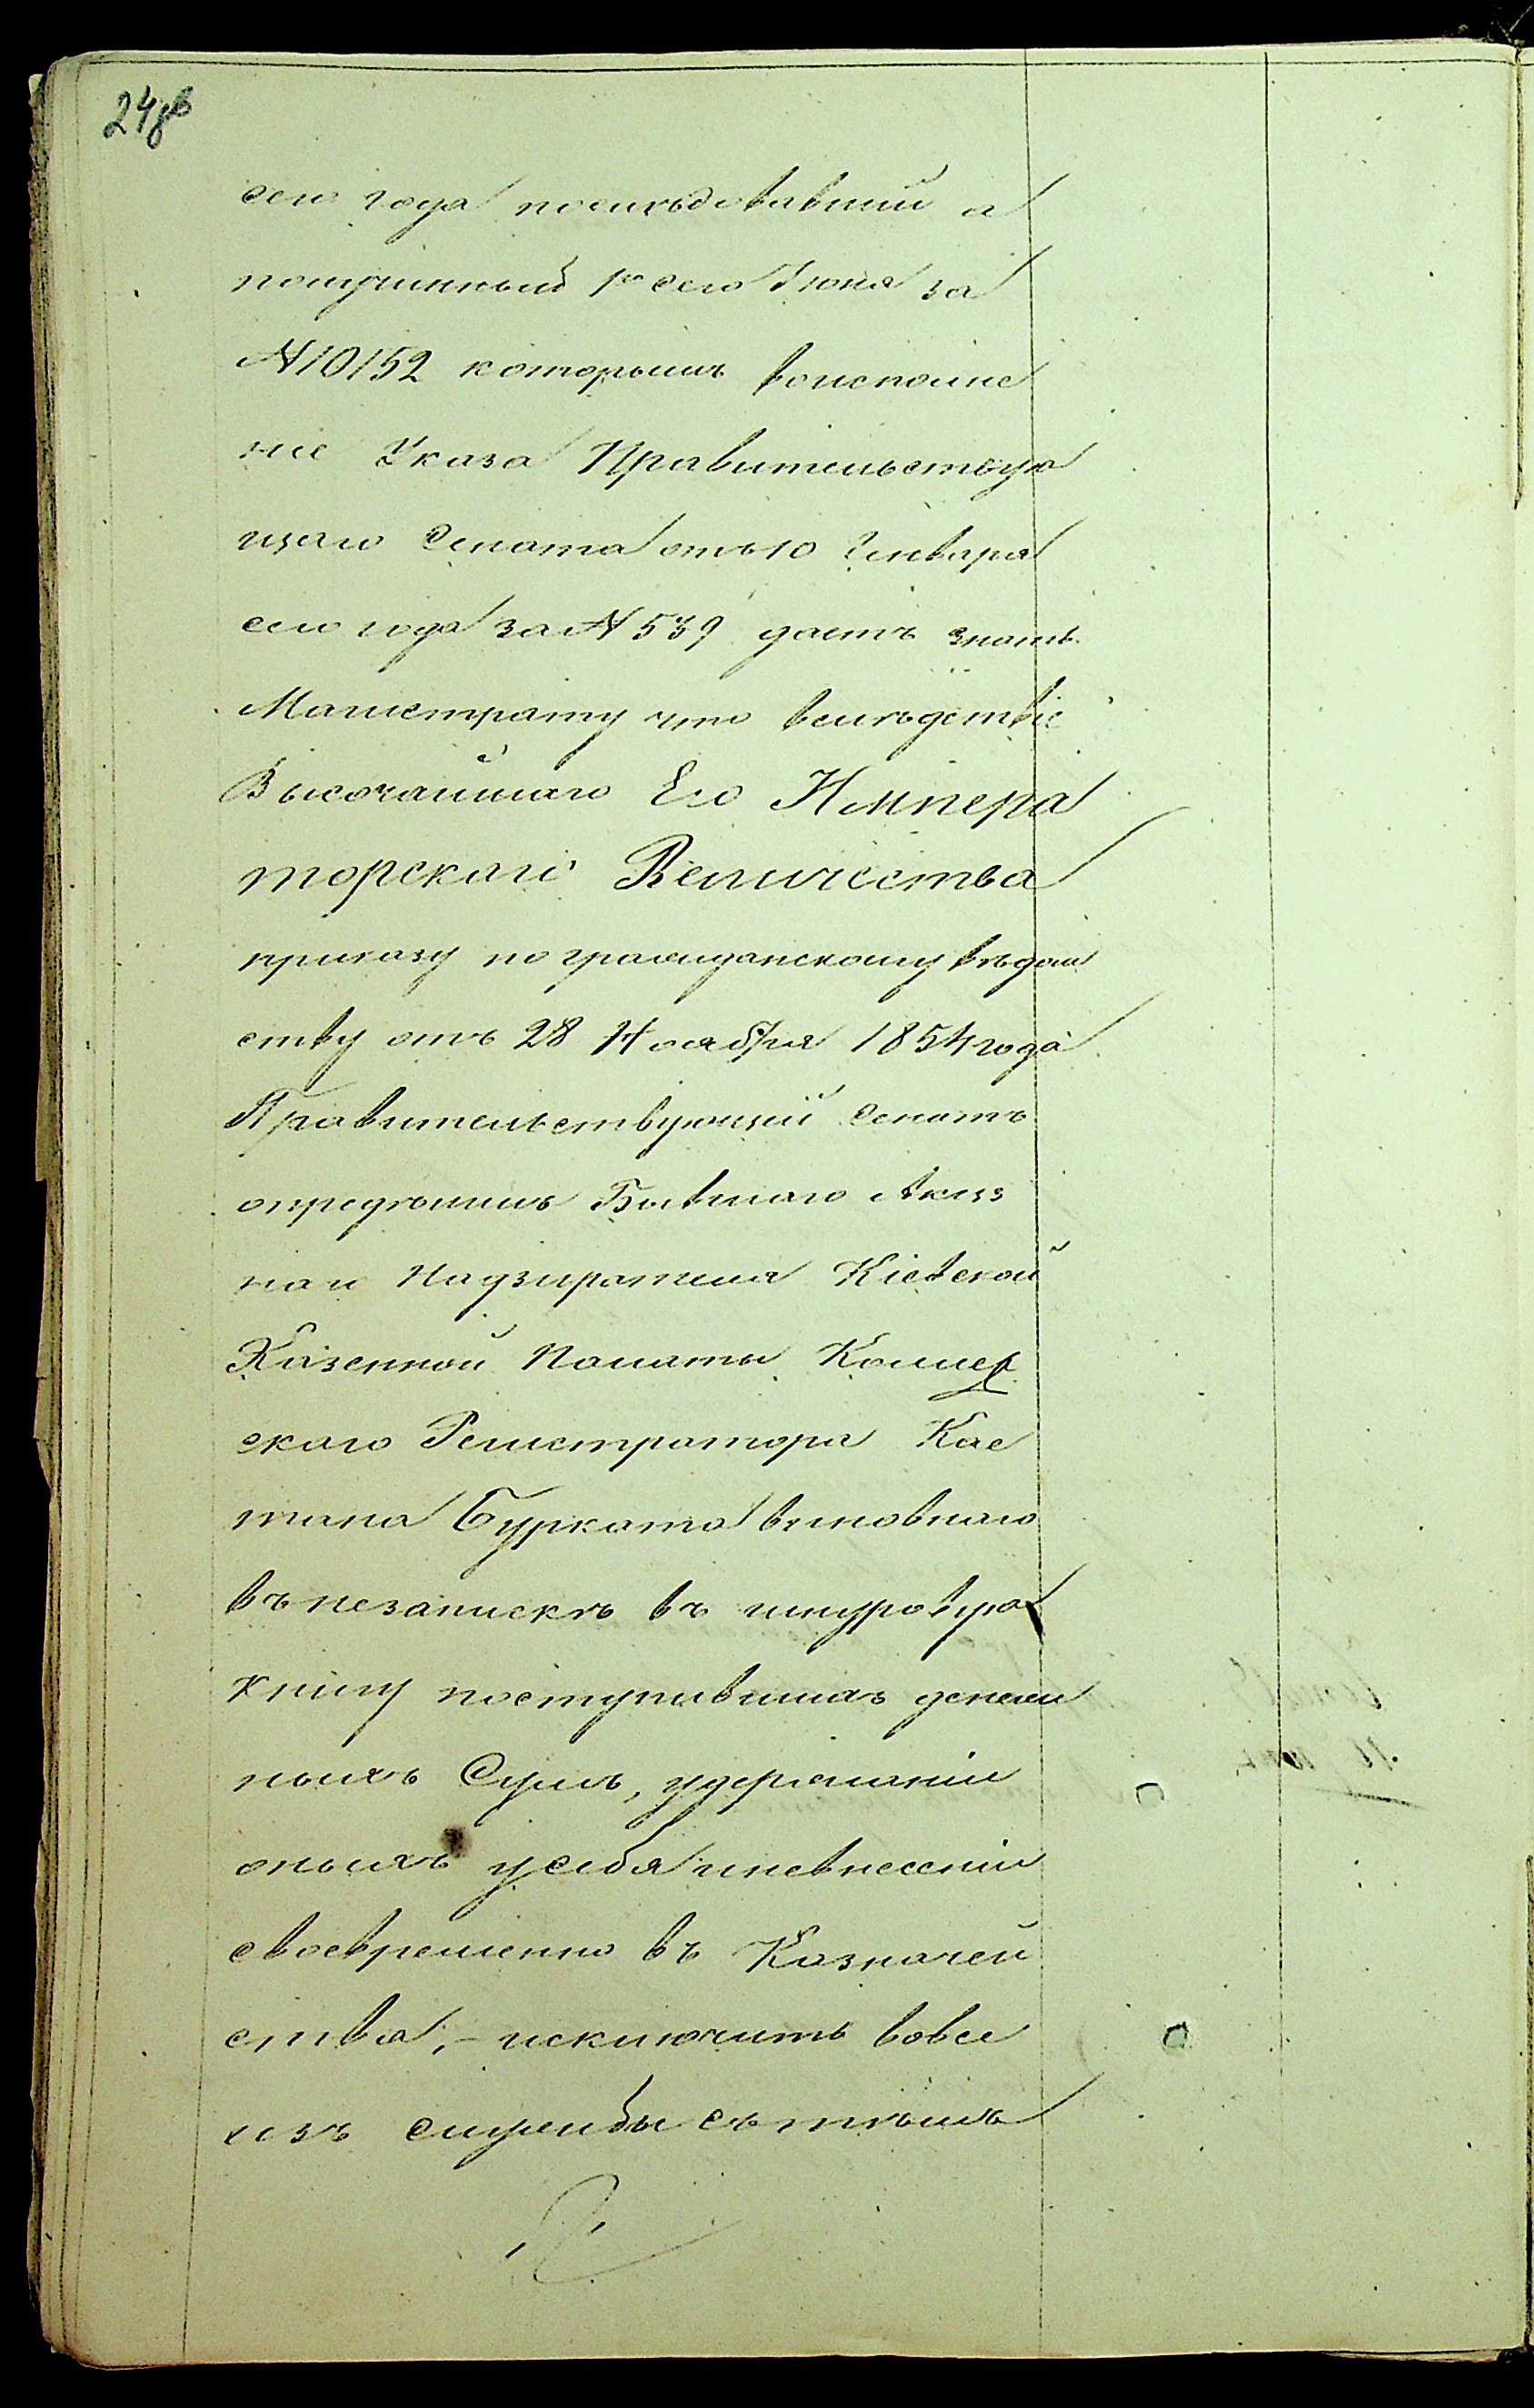 24об
сего года последовавшій а
полученный 1го сего Іюня за
№10152 которымъ воисполне
ніе Указа Правительствую
щаго Сената отъ 10 Генваря
сего года за №539 даетъ знать
Магистрату что вслѣдствіе
Высочайшаго Его Импера
торскаго Величества
приказу по гражданскому вѣдом
ству отъ 28 Ноября 1854 года
Правительствующій Сенатъ
опредѣлилъ Бывшаго Акциз
наго Надзирателя Кіевской
Казенной Палаты Коллеж
скаго Регистратора Кае
тана Бурката виновнаго
въ незапискѣ въ шнуровую
книгу поступившихъ денеж
ныхъ Сумъ, удержаніи
оныхъ у себя и невнесеніи
своевременно въ Казначей
ства, - исключить вовсе
изъ службы съ тѣмъ